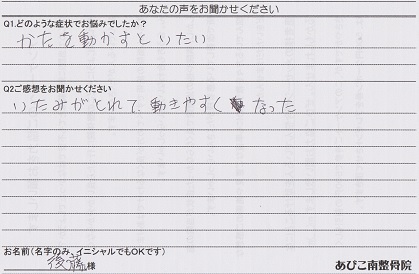 あなたの声をお聞かせください
Q1.どのような症状でお悩みでしたか？
かたを動かすといたい
Q2ご感想をお聞かせください
いたみがとれて、動きやすくなった
お名前(名字のみ、イニシャルでもOKです)
後藤様
あびこ南整骨院